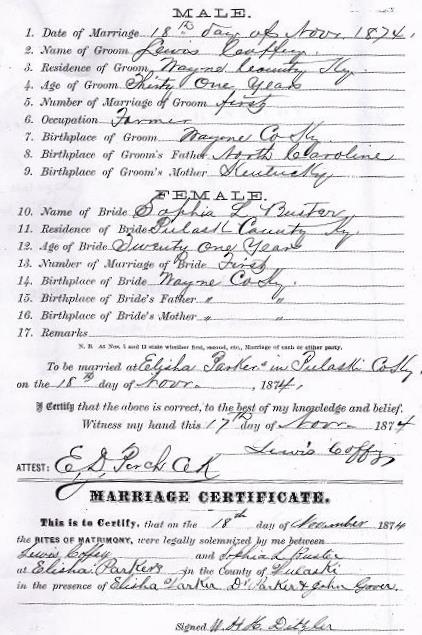 MALE.
1. Date of Marriage 18th day of Novr. 1874,
2. Name of Groom Lewis Coffey
3. Residence of Groom Wayne County Ky.
4. Age of Groom Thirty One Years
5. Number of Marriage of Groom first
6. Occupation Farmer
7. Birthplace of Groom Wayne Co Ky.
8. Birthplace of Groom's Father North Caroline
9. Birthplace of Groom's Mother Kentucky
FEMALE.
10. Name of Bride Sophia L Buster
11. Residence of Bride Pulaski County Ky
12. Age of Bride Twenty One Years
13. Number of Marriage of Bride First
14. Birthplace of Bride Wayne Co Ky.
15. Birthplace of Bride's Father " "
16. Birthplace of Bride's Mother " "
17. Remarks
N. B. At Nos. 5 and 13 state whether first, second, etc., Marriage of each or either party.
To be married at Elisha Parker's in Pulaski Co Ky.
on the 18th day of Novr. , 1874,
I Certify that the above is correct, to the best of my knowledge and belief.
Witness my hand this 17th day of Novr. 1874
Lewis Coffey
ATTEST: E. D.
MARRIAGE CERTIFICATE.
This is to Certify, that on the 18th day of November 1874
the RITES OF MATRIMONY, were legally solemnized by me between
Lewis Coffey and Sophia L Buster
at Elisha Parkers in the County of Pulaski
in the presence of Elisha Parker Dr Parker & John Gover.
Signed W. H. H.